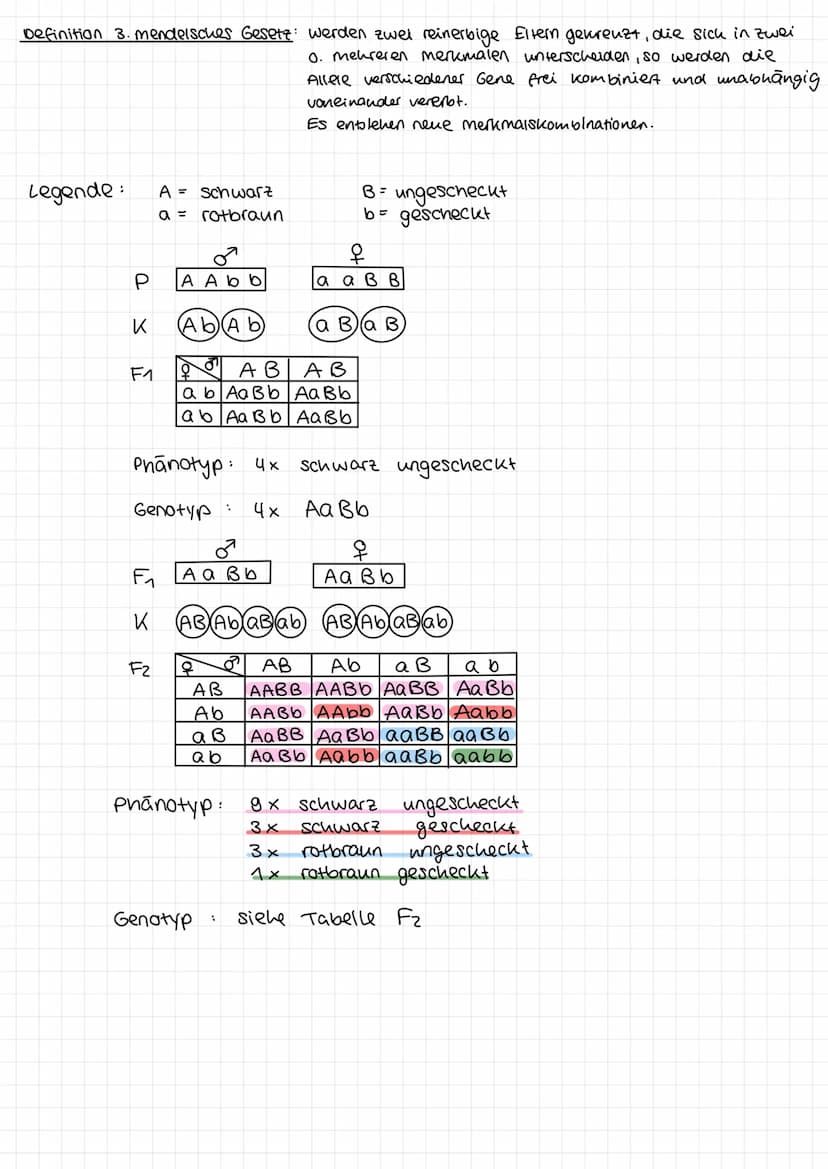 Definition 3. mendelsches Gesetz: werden zwei reinerbige Eltern gekreuzt, die sich in zwei
o. mehreren merkmalen unterscheiden, so werden die
Allele verschiedener Gene frei kombiniert und unabhängig
voneinander vererbt.
Es entstehen neue merkmalskombinationen.
Legende: A = schwarz B = ungescheckt
a = rotbraun b = gescheckt
♂ ♀
P A A b b a a B B
K A b A b a B a B
F1 ♀ ♂ A B A B
a b AaBb AaBb
a b AaBb AaBb
Phänotyp: 4x schwarz ungescheckt
Genotyp : 4x AaBb
♂ ♀
F1 A a B b A a B b
K AB Ab aB ab AB Ab aB ab
F2 ♀ ♂ AB Ab aB ab
AB AABB AABb AaBB AaBb
Ab AABb AAbb AaBb Aabb
aB AaBB AaBb aaBB aaBb
ab AaBb Aabb aaBb aabb
Phänotyp: 9x schwarz ungescheckt
3x schwarz gescheckt
3x rotbraun ungescheckt
1x rotbraun gescheckt
Genotyp : siehe Tabelle F2